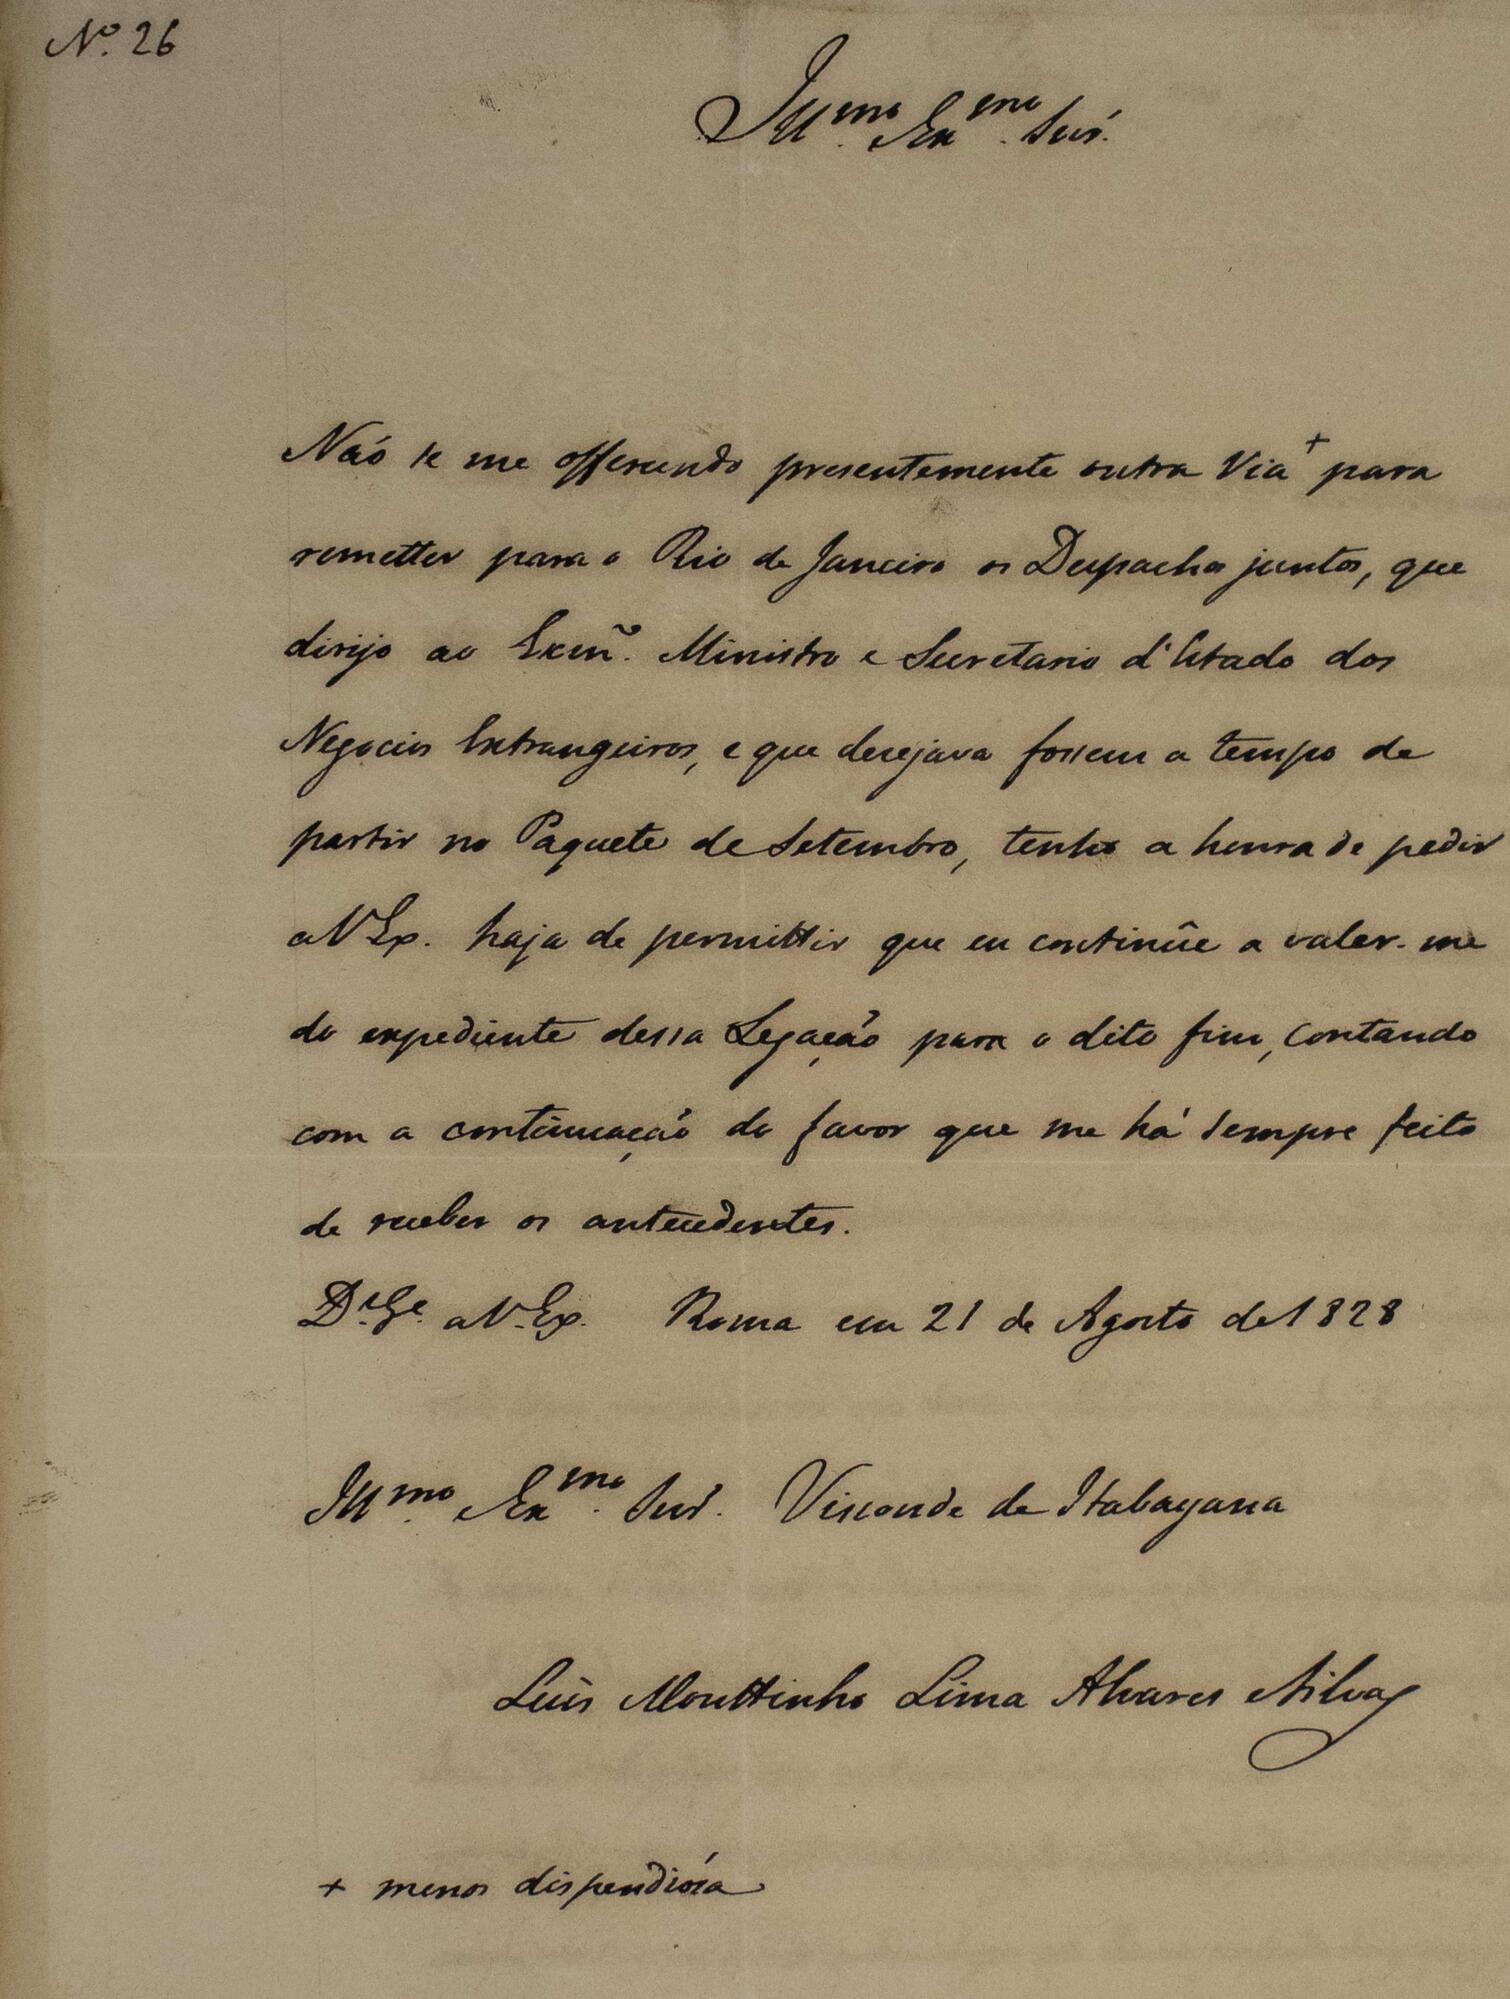 Nº. 26
Illmo. Exmo. Snr.
Não se me offerecendo presentemente outra Via + para
remetter para o Rio de Janeiro os Despachos juntos, que
dirijo ao Exmº. Ministro e Secretario d'Estado dos
Negocios Extrangeiros, e que desejava fossem a tempo de
partir no Paquete de Setembro, tenho a honra de pedir
a V Ex. haja de permittir que eu continûe a valer-me
do expediente dessa Legação para o dito fim, contando
com a continuação do favor que me há sempre feito
de receber os antecedentes.
De. Ge. a V. Ex. Roma em 21 de Agosto de 1828
Illmo. Exmo. Snr. Visconde de Itabayana
Luis Mouttinho Lima Alvares eSilva
+ menos dispendiósa